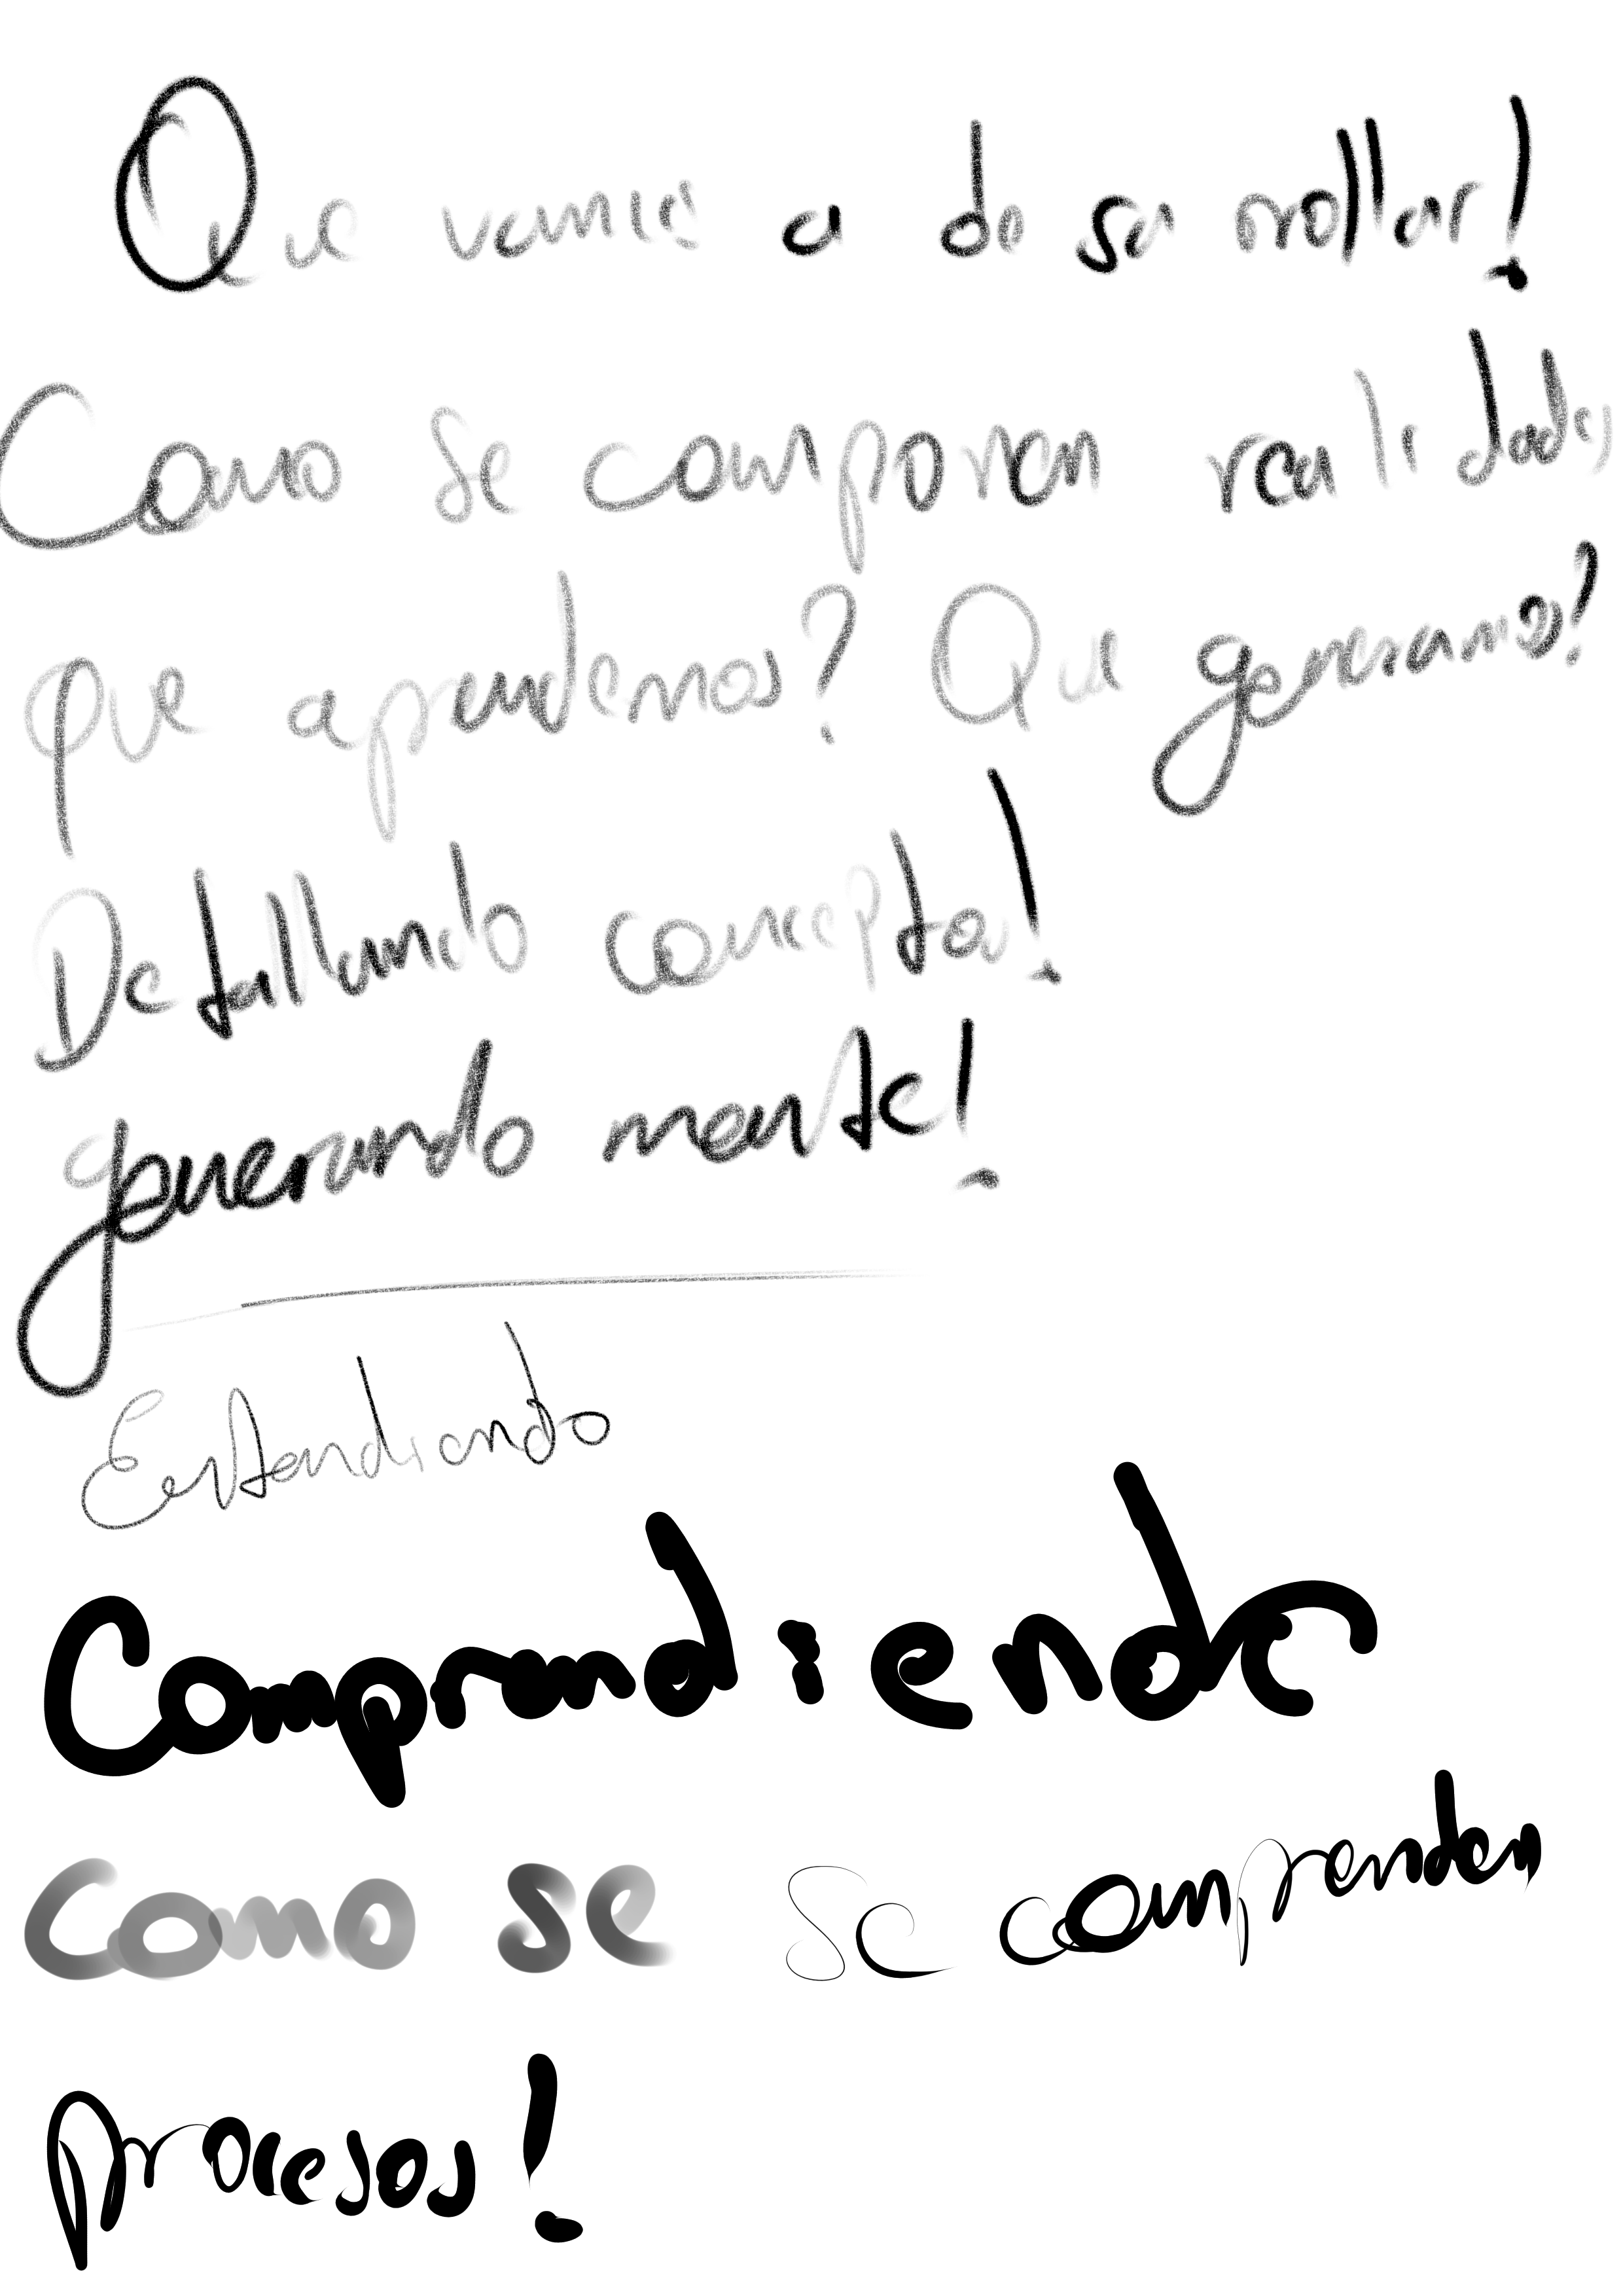 Que vamos a desarrollar!
Como se componen realidades
que aprendemos? Que generamos?
Detallando conceptos!
generando mente!
Entendiendo
Comprendiendo
Como se se comprenden
procesos!